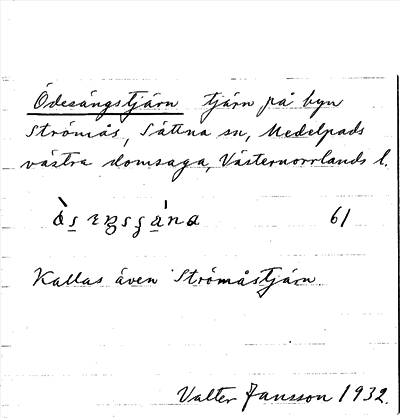 Ödesängstjärn tjärn på byn
Strömås, Sättna sn, Medelpads
västra domsaga, Västernorrlands l.
61
Kallas även Strömåstjärn
Valter Jansson 1932.